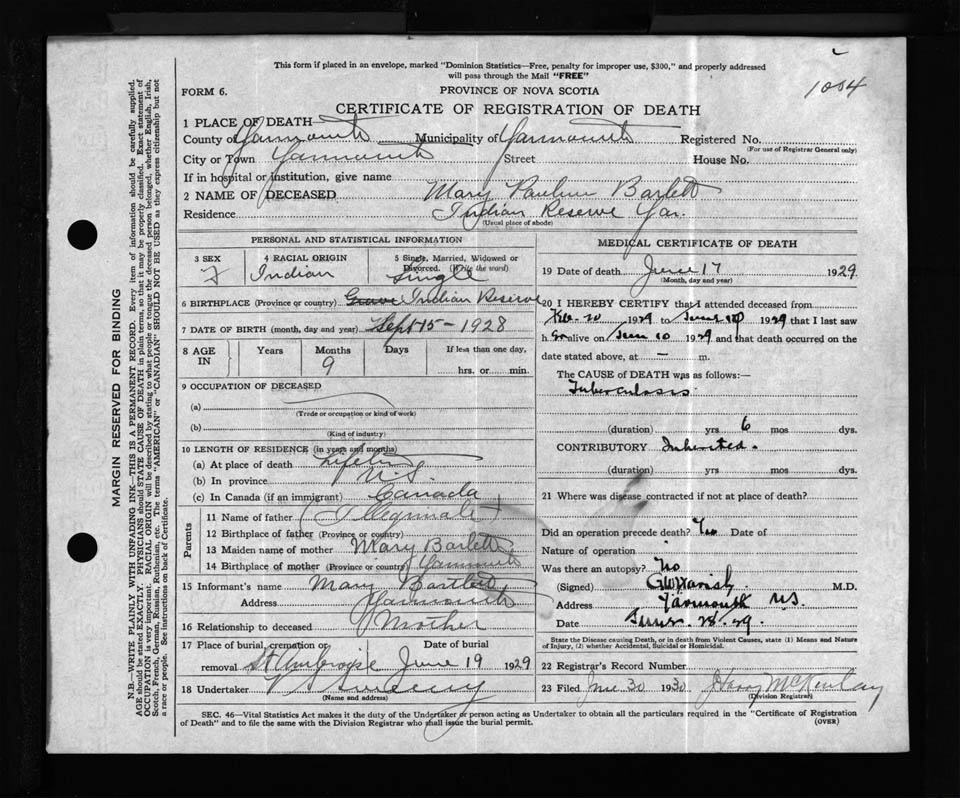 1004
This form if placed in an envelope, marked "Dominion Statistics—Free, penalty for improper use, $300," and properly addressed
will pass through the Mail "FREE"
FORM 6.
PROVINCE OF NOVA SCOTIA
CERTIFICATE OF REGISTRATION OF DEATH
1 PLACE OF DEATH
County of Yarmouth Municipality of Yarmouth Registered No.
(For use of Registrar General only)
City or Town Yarmouth Street House No.
If in hospital or institution, give name
2 NAME OF DECEASED Mary Pauline Barlett
Residence Indian Reserve Yar.
(Usual place of abode)
PERSONAL AND STATISTICAL INFORMATION
3 SEX 4 RACIAL ORIGIN 5 Single, Married, Widowed or Divorced. (Write the word)
F Indian Single
6 BIRTHPLACE (Province or country) Indian Reserve
7 DATE OF BIRTH (month, day and year) Sept 15 - 1928
8 AGE IN Years Months Days If less than one day,
9
hrs. or min.
9 OCCUPATION OF DECEASED
(a)
(Trade or occupation or kind of work)
(b)
(Kind of industry)
10 LENGTH OF RESIDENCE (in years and months)
(a) At place of death
(b) In province N.S.
(c) In Canada (if an immigrant) Canada
Parents
11 Name of father (Illegimate)
12 Birthplace of father (Province or country)
13 Maiden name of mother Mary Barlett
14 Birthplace of mother (Province or country) Yarmouth
15 Informant's name Mary Bartlett
Address Yarmouth
16 Relationship to deceased Mother
17 Place of burial, cremation or removal Date of burial
St Ambroise June 19 1929
18 Undertaker V Sweeny
(Name and address)
MEDICAL CERTIFICATE OF DEATH
19 Date of death June 17 1929.
(Month, day and year)
20 I HEREBY CERTIFY that I attended deceased from
Feb. 20 1929 to June 10 1929 that I last saw
h er alive on June 10 1929 and that death occurred on the
date stated above, at — m.
The CAUSE of DEATH was as follows:—
Tuberculosis
(duration) yrs 6 mos dys.
CONTRIBUTORY Inherited.
(duration) yrs mos dys.
21 Where was disease contracted if not at place of death?
Did an operation precede death? No Date of
Nature of operation
Was there an autopsy? No
(Signed) M.D.
Address Yarmouth N.S.
Date June. 28. 29.
State the Disease causing Death, or in death from Violent Causes, state (1) Means and Nature
of Injury, (2) whether Accidental, Suicidal or Homicidal.
22 Registrar's Record Number
23 Filed June 30 1930 Harry McKinlay
(Division Registrar)
SEC. 46—Vital Statistics Act makes it the duty of the Undertaker or person acting as Undertaker to obtain all the particulars required in the "Certificate of Registration
of Death" and to file the same with the Division Registrar who shall issue the burial permit.
(OVER)
MARGIN RESERVED FOR BINDING
N.B.—WRITE PLAINLY WITH UNFADING INK—THIS IS A PERMANENT RECORD. Every item of information should be carefully supplied.
AGE should be stated EXACTLY. PHYSICIANS should STATE CAUSE OF DEATH in plain terms, so that it may be properly classified. Exact statement of
OCCUPATION is very important. RACIAL ORIGIN will be described by stating to what people or tongue the deceased person belonged, whether English, Irish,
Scotch, French, German, Russian, Ruthenian, etc. The terms "AMERICAN" or "CANADIAN" SHOULD NOT BE USED as they express citizenship but not
a race or people. See instructions on back of Certificate.